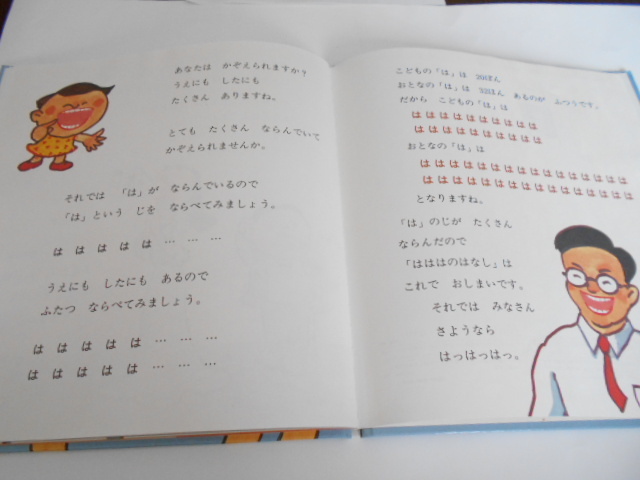 あなたは かぞえられますか?
うえにも したにも
たくさん ありますね。
とても たくさん ならんでいて
かぞえられませんか。
それでは 「は」が ならんでいるので
「は」という じを ならべてみましょう。
は は は は は … … …
うえにも したにも あるので
ふたつ ならべてみましょう。
は は は は は … … …
は は は は は … … …
こどもの「は」は 20ぽん
おとなの「は」は 32ほん あるのが ふつうです。
だから こどもの「は」は
は は は は は は は は は は
は は は は は は は は は は
おとなの「は」は
は は は は は は は は は は は は は は は は
は は は は は は は は は は は は は は は は
となりますね。
「は」のじが たくさん
ならんだので
「はははのはなし」は
これで おしまいです。
それでは みなさん
さようなら
はっはっはっ。